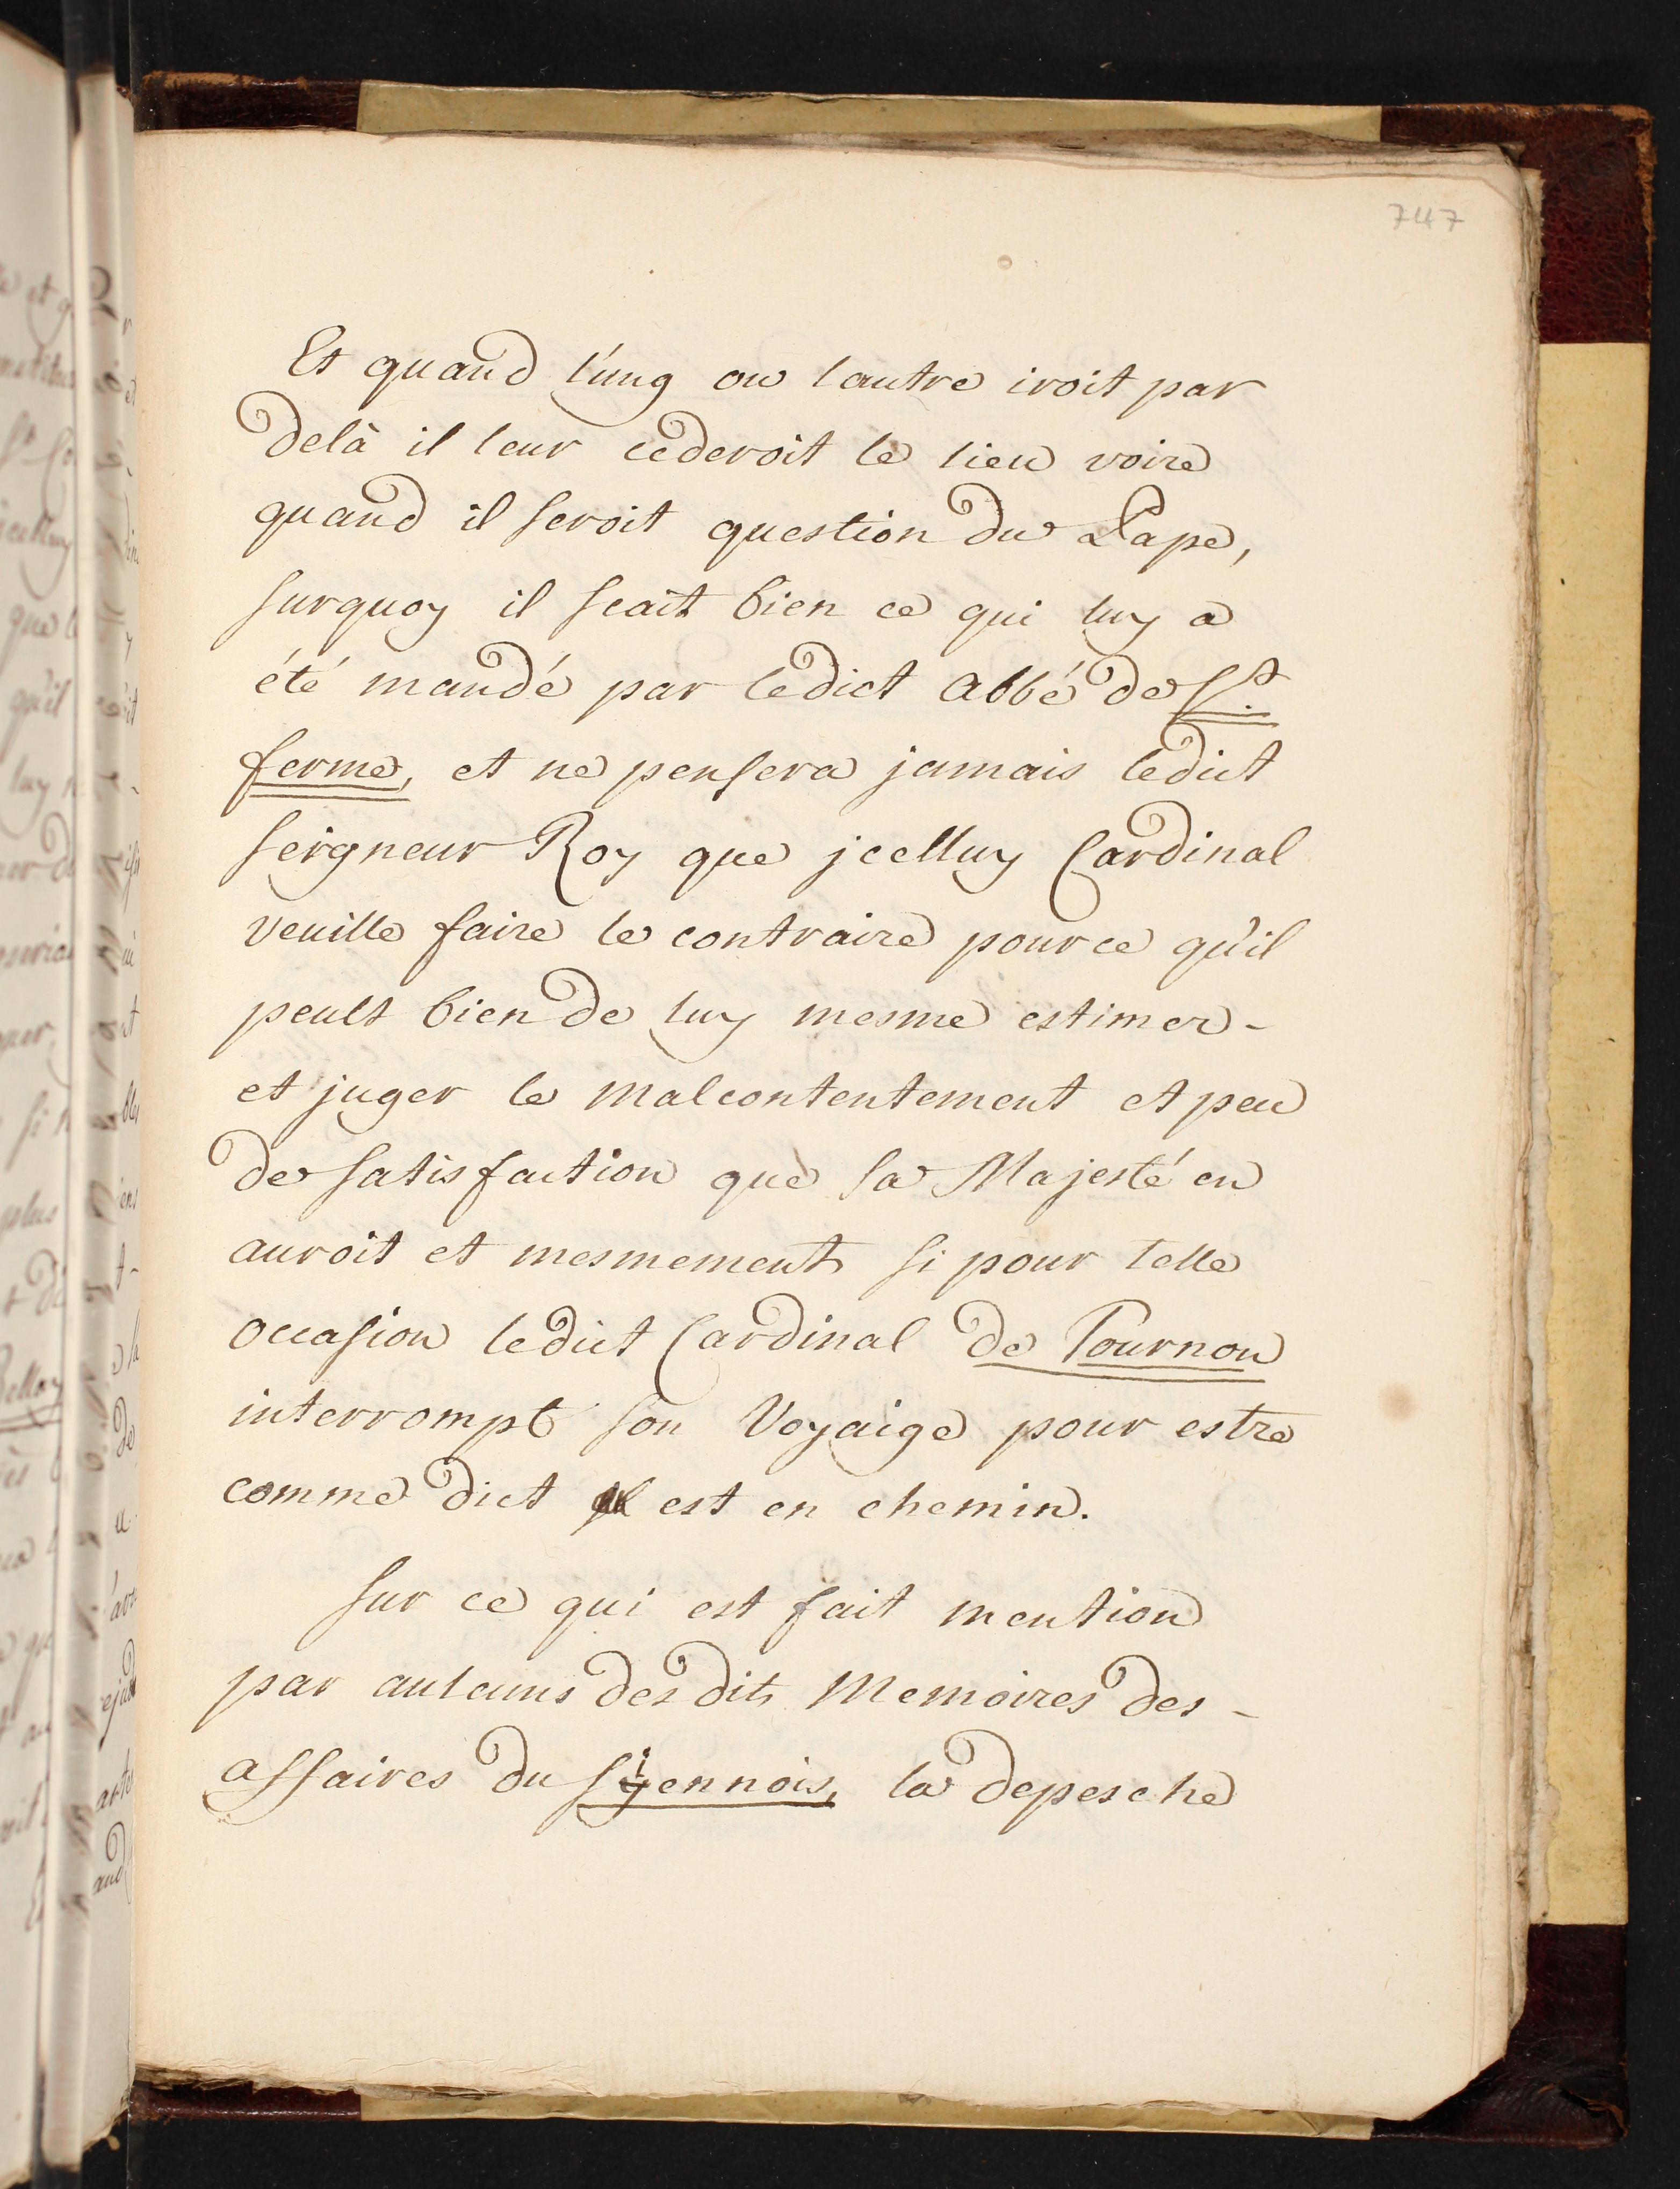 747
Et quand l'ung ou lautre iroit par
delà il leur cederoit le lieu voire
quand il seroit question du Pape,
surquoy il scait bien ce qui luy a
été mandé par ledict abbé de St.
ferme, et ne pensera jamais ledict
seigneur Roy que jcelluy Cardinal
veuille faire le contraire pource qu'il
peult bien de luy mesme estimer -
et juger le malcontentement et peu
de satisfaction que sa Majesté en
auroit et mesmement si pour telle
occasion ledict Cardinal de Tournon
interrompt son Voyaige pour estre
comme dict est en chemin.
sur ce qui est fait mention
par aulcuns des dits Memoires des -
affaires du siennois, la depesche